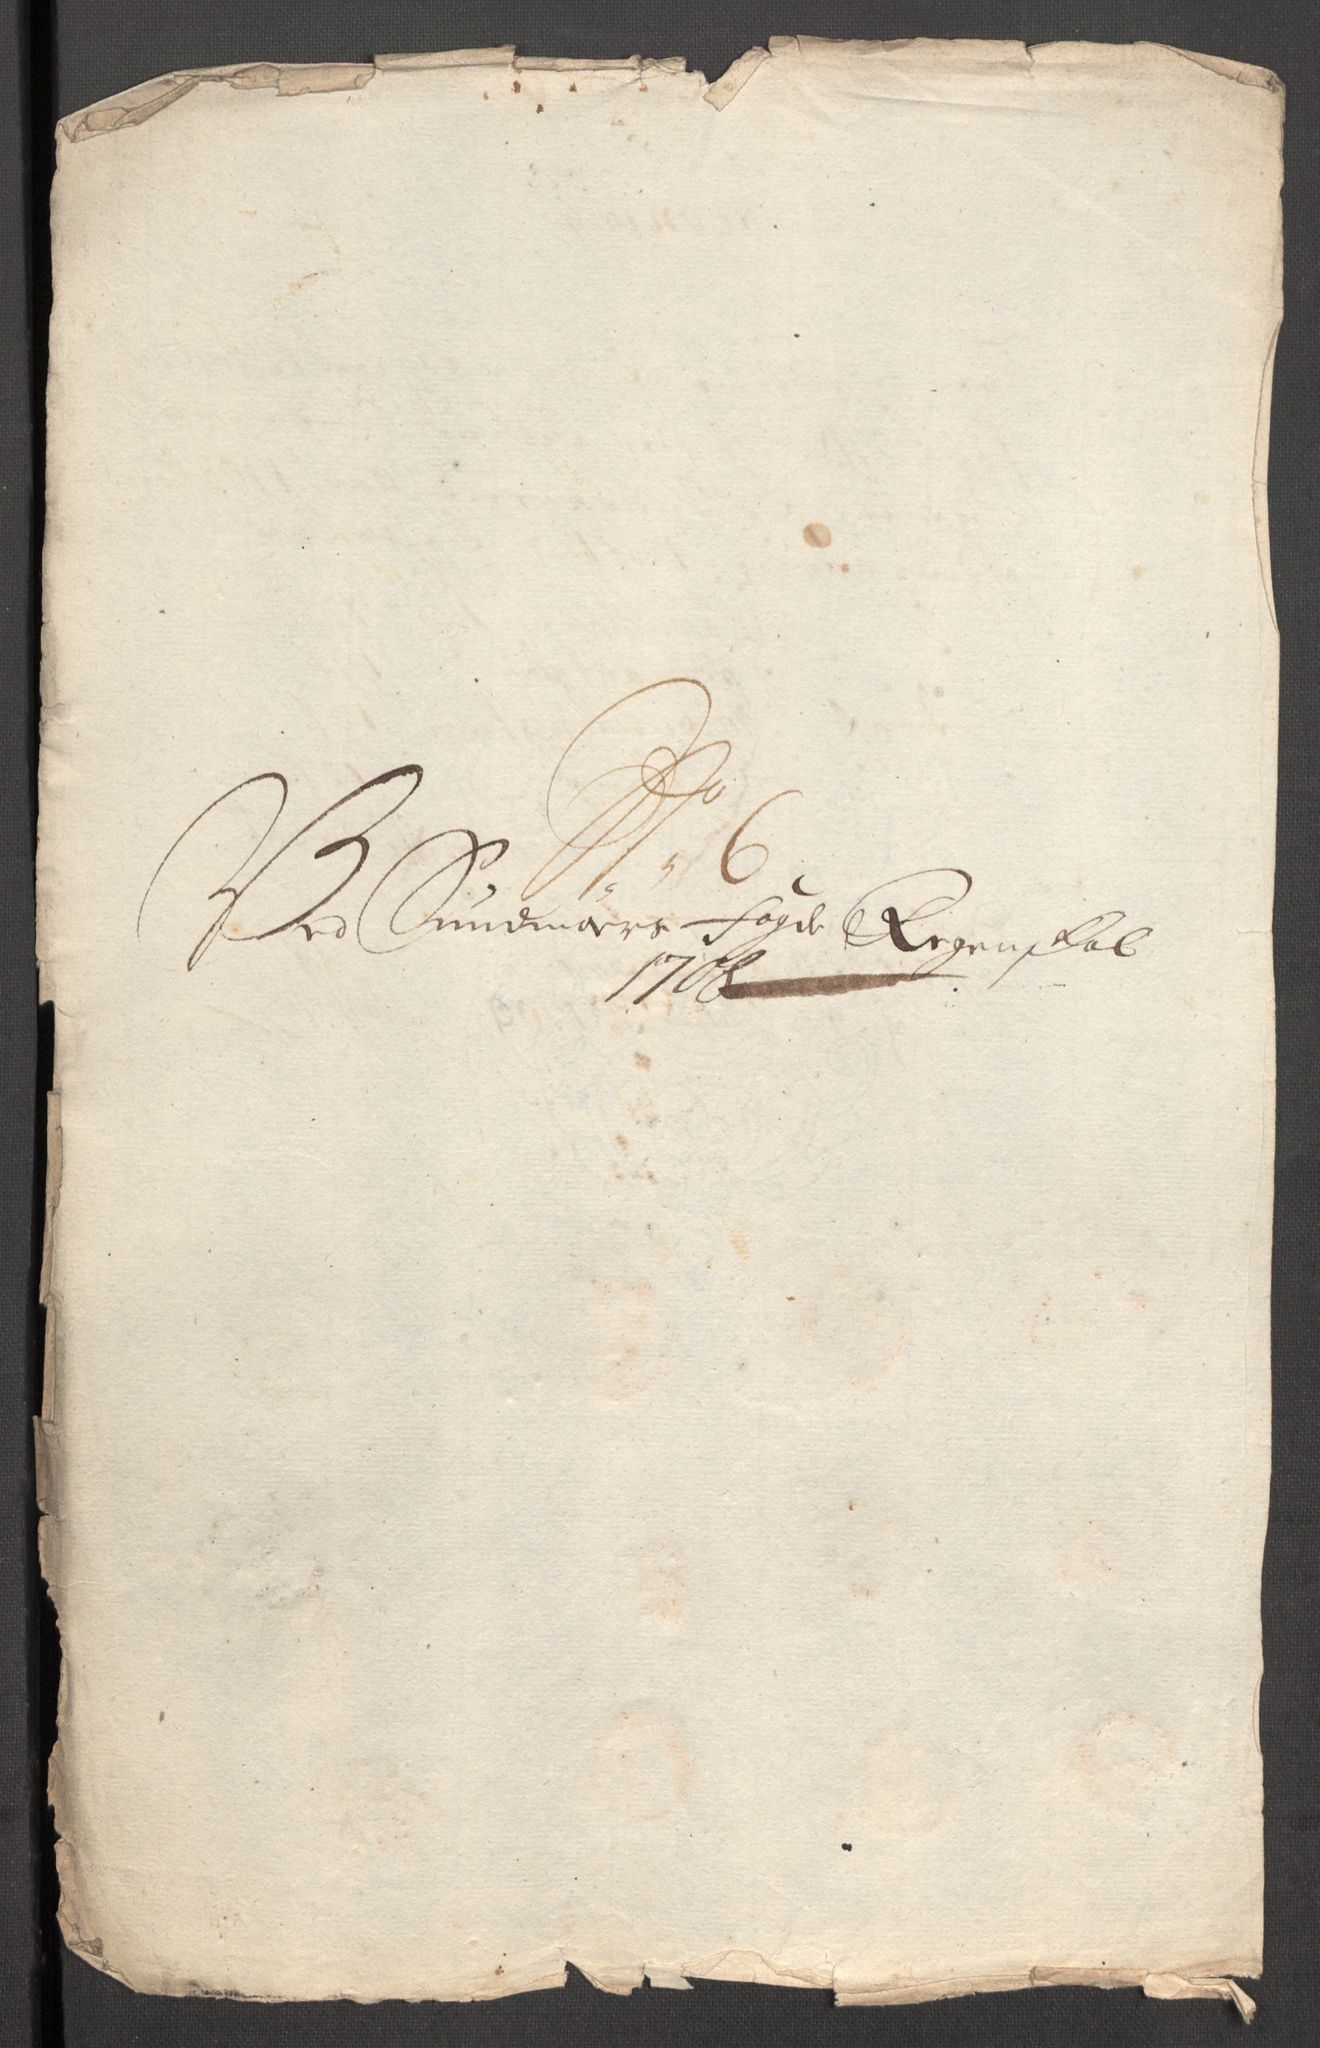 No 6
Ved Sundmørs fogde Regenskab
1708